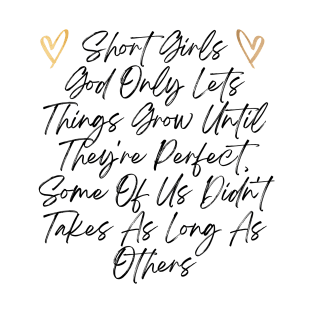 Short Girls
God Only Lets
Things Grow Until
They're Perfect,
Some Of Us Didn't
Takes As Long As
Others